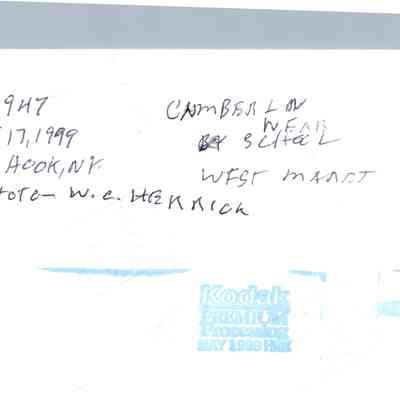 947
17, 1999
HOOK, NY.
W. C. HERRICK
CUMBERLIN
NEAR
SCHOOL
WEST MARKET
Kodak
PREMIUM
Processing
MAY 1999 FMK